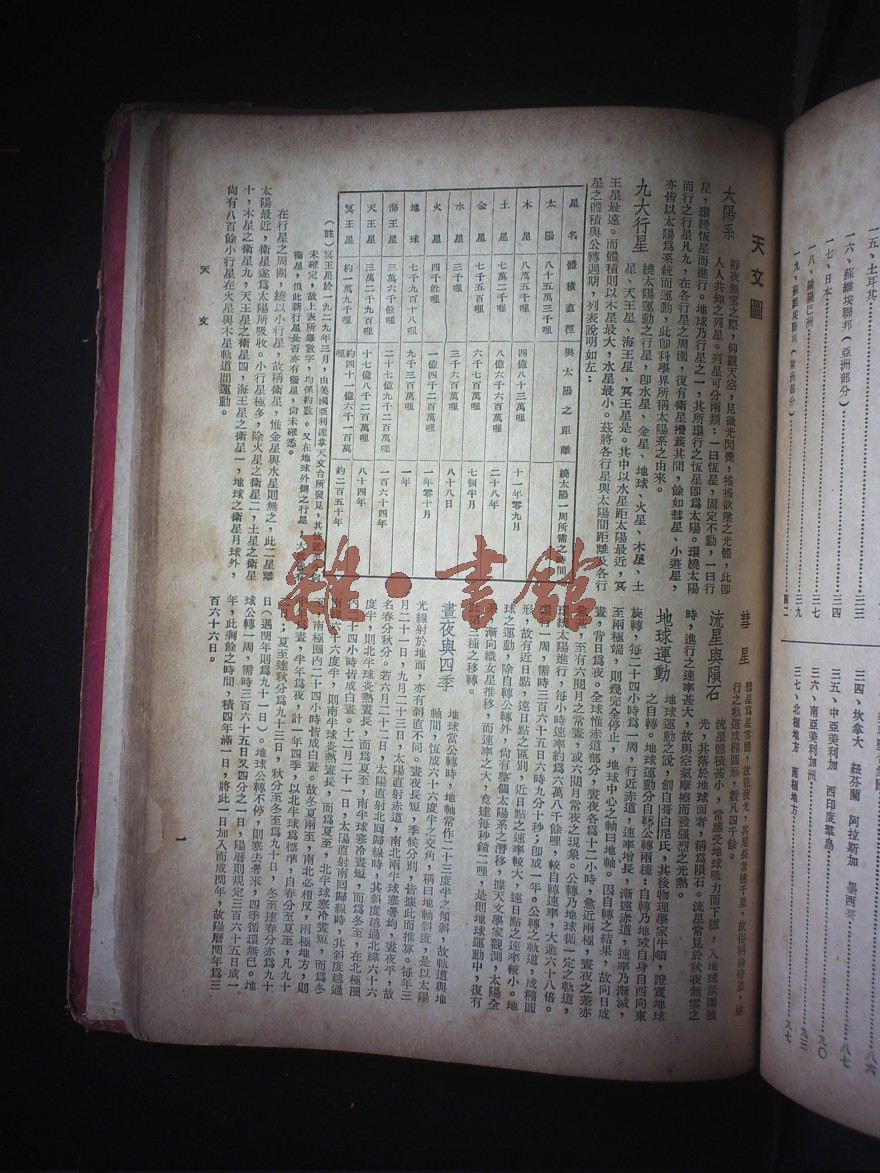 天文圖
太陽系
靜夜無雲之際，仰觀天空，見微光閃爍，搖搖欲墜之光體，此卽
人人共知之列星。列星可分兩類：一曰恆星，固定不動，一曰行
星，環繞恆星而進行。地球乃行星之一，其所環行之恆星卽爲太陽。環繞太陽
而行之行星凡九，在各行星之周圍，復有衛星攙蓋其間，餘如彗星、小遊星，
亦皆以太陽爲系統而運動，此卽科學界所稱太陽系之由來。
九大行星
繞太陽運動之行星，卽水星、金星、地球、火星、木星、土
星、天王星、海王星、冥王星是。其中以水星距太陽最近，冥
王星最遠。而體積則以木星最大，水星最小。茲將各行星與太陽間距離及各行
星之體積與公轉週期，列表說明如左：
星名 體積直徑 與太陽之距離 繞太陽一周所需之時間
太陽 八十五萬三千哩
木星 八萬五千哩 四億八十三萬哩 十一年零九月
土星 七萬二千哩 八億六千六百萬哩 二十八年
金星 七千五百哩 六千七百萬哩 七個半月
水星 三千哩 三千六百萬哩 八十八日
火星 四千餘哩 一億四千二百萬哩 一年零十月
地球 七千九百十八哩 九千三百萬哩 一年
海王星 三萬六千餘哩 二十七億九千二百萬哩 一百六十四年
天王星 三萬二千九百哩 十七億八千二百萬哩 八十四年
冥王星 約一萬九千哩 約四十一億六千一百萬哩 約二百五十年
（註）冥王星於一九二九年三月，由美國亞利達拿天文台所發見，其位置
未確定，故上表所舉數字，均係約數。又在地球外側之行星，大
衛星，但此新行星是否亦有衛星，尙未確悉。
在行星之周圍，繞以小行星，故稱衛星，惟金星與水星則無之，此二星離
太陽最近，衛星遂爲太陽所吸收。小行星極多，除火星之衛星二，土星之衛星
十，木星之衛星九，天王星之衛星四，海王星之衛星一，地球之衛星月球外，
尙有八百餘小行星在火星與木星軌道間運動。
彗星
彗星爲星雲體，故能發光，其尾長者達千里，故俗稱掃帚星，運
行之軌道成橢圓形，數凡四千餘。
流星與隕石
流星體積甚小，常感受地球吸力而下墮，入地球氛圍發
光，其落於地球面者，稱爲隕石。流星常見於秋夜無雲之
時，進行之速率甚大，故與空氣摩擦而發強烈之光熱。
地球運動
地球運動之說，創自哥白尼氏，其後物理學家牛頓，證實地球
之自轉。地球運動分自轉公轉兩種：自轉乃地球自身自西向東
旋轉，每二十四小時爲一周，行近赤道，速率增長，漸遠赤道，速率乃漸減，
至兩極端，則幾完全停止，地球中心之軸曰地軸。因自轉之結果，故向日成
晝，背日爲夜。全球惟赤道部分，晝夜各爲十二小時，愈近兩極，晝夜之差亦
愈甚，至有六閱月之常晝，或六閱月當夜之現象。公轉乃地球循一定之軌道，
環繞太陽進行，每小時速率約爲六萬八千餘哩，較自轉速率，大逾六十八倍。
環日一周，需時三百六十五日六時九分十秒；卽成一年。公轉之軌道，成橢圓
形，故有近日點，遠日點之區別，近日點之速率較大，遠日點之速率較小。地
球之運動，除自轉公轉外，尙有整個太陽系之潛移，據天文學家觀測，太陽全
系，漸向織女星推移，而速率之大，竟達每秒鐘二哩，是則地球運動中，復有
此第三種之移轉。
晝夜與四季
地球當公轉時，地軸常作二十三度半之傾斜，故軌道與地
軸間，恆成六十六度半之交角，稱曰地軸斜度，是以太陽
光線射於地面，亦有斜直不同。晝夜長短，季候分別，皆據此而推算。每年三
月二十一日，九月二十三日，太陽直射赤道，南北兩半球寒暑均，晝夜平，故
名春分秋分。若六月二十二日，太陽直射北回歸線時，其斜度逾過北緯六十六
度半，則北半球炎熱晝長，而爲夏至，南半球寒冷晝短，而爲冬至，在北極圈
內二十四小時皆成白晝。十二月二十一日，太陽直射南回歸線時，其斜度逾過
南緯六十六度半，則南半球炎熱晝長，而爲夏至，北半球寒冷晝短，而爲冬
至，南極圈內二十四小時皆成白晝。故冬夏兩至，南北必相反，兩極地方，則
半年爲晝，半年爲夜，計一年四季，以北半球爲標準，自春分至夏至，凡九十
三日；夏至達秋分爲九十三日，秋分至冬至爲九十日，冬至達春分亦爲九十
日（遇閏年則爲九十一日）。地球公轉不停，則寒去暑來，四季循環無已。地
球公轉一周，需時三百六十五日又四分之一日，陽曆則規定三百六十五日成一
年，此剩餘之時間，積四年滿一日，將此一日加入而成閏年，故陽曆閏年爲三
百六十六日。
天文
一
一五、土耳其
一六、蘇維埃聯邦（亞洲部分） 三三
一七、日本 三四
一八、歐羅巴洲 三七
一九、蘇維埃聯邦（歐洲部分） 三九
三四、坎拿大 紐芬蘭 阿拉斯加 墨西哥 八六
三五、中亞美利加 西印度羣島 八七
三六、南亞美利加洲 九〇
三七、北極地方 南極地方 九三
九七
雜·書館